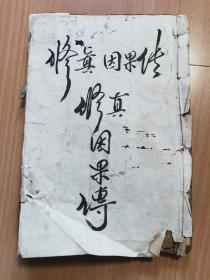 修真因果传
修真
因果傳